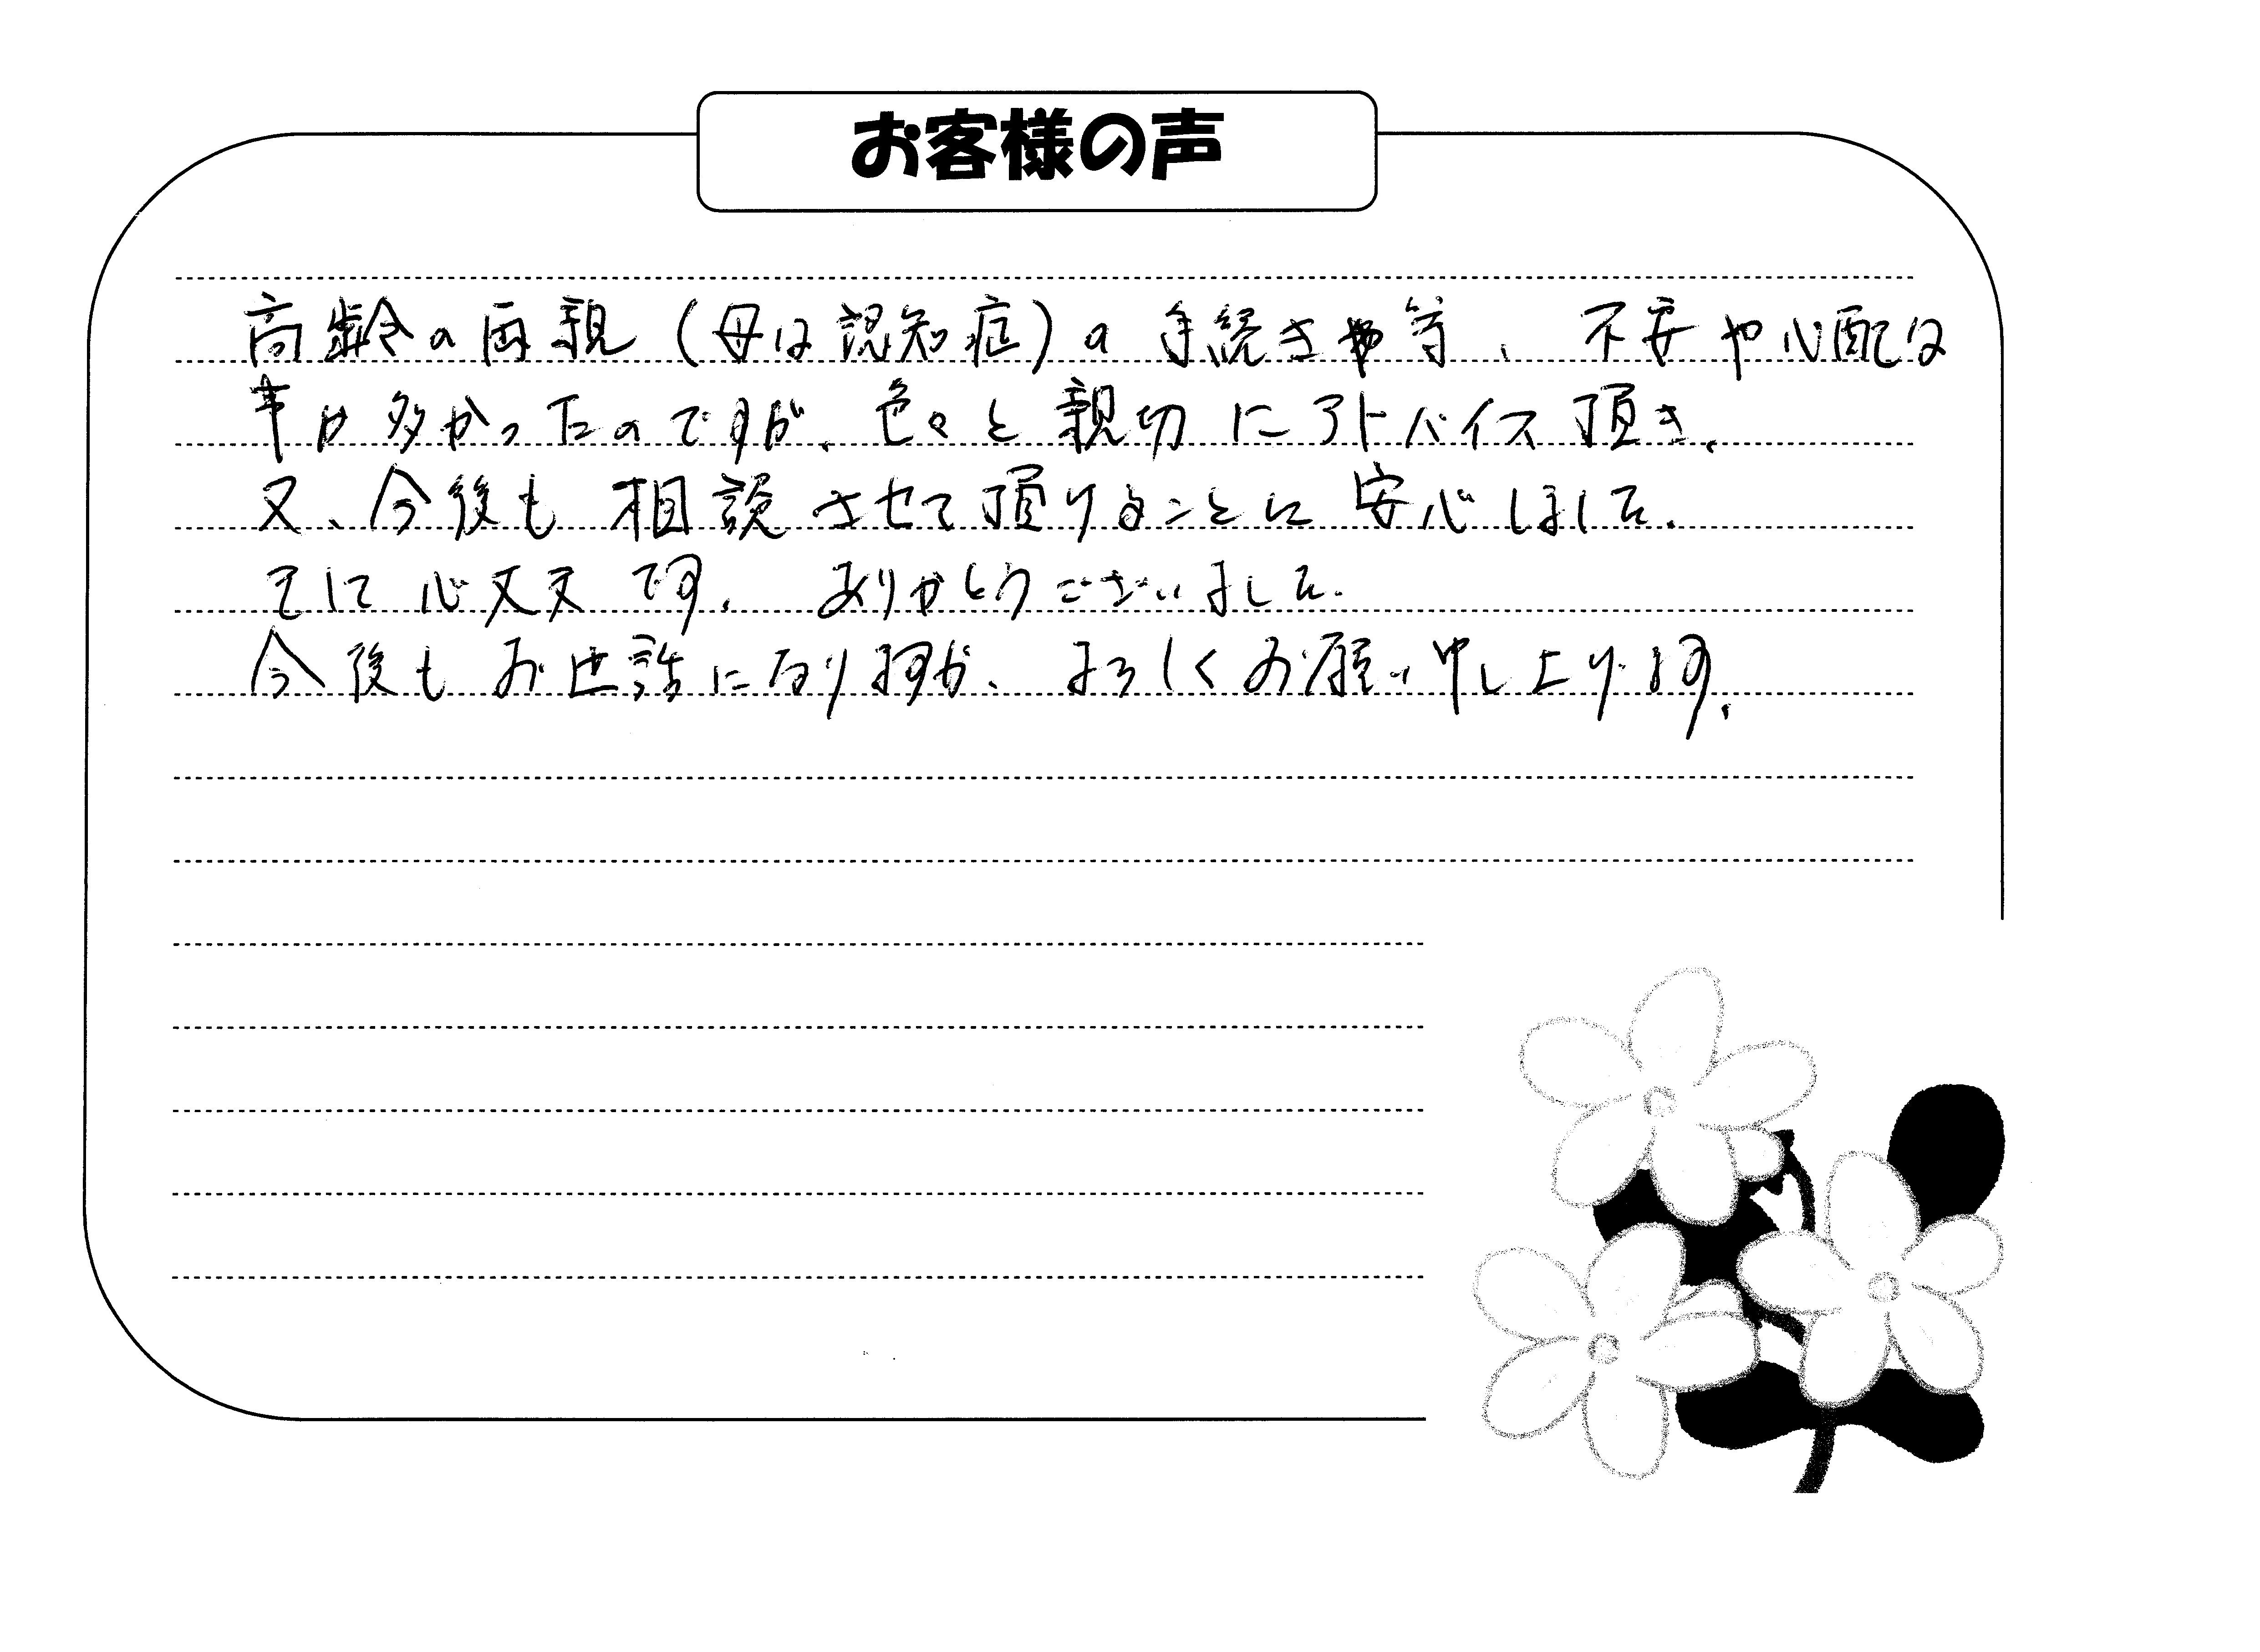 お客様の声
高齢の両親（母は認知症）の手続き等、不安や心配な
事が多かったのですが、色々と親切にアドバイス頂き、
又、今後も相談させて頂けることに安心しました。
とても心丈夫です。ありがとうございました。
今後もお世話になりますが、よろしくお願い申し上げます。